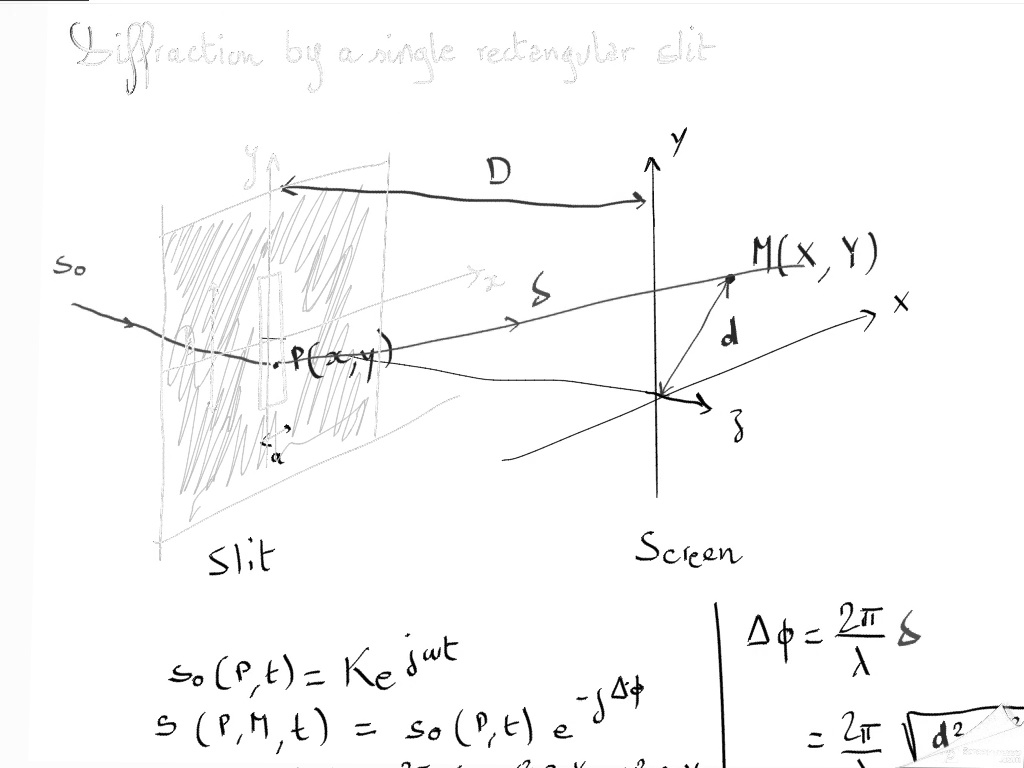 Diffraction by a single rectangular slit
y
Y
D
s₀
M(X, Y)
x
δ
X
d
P(x,y)
z
a
Slit
Screen
s₀(P,t) = Ke^jωt
Δϕ = 2π/λ δ
s(P,M,t) = s₀(P,t) e^-jΔϕ
= 2π/λ √d²